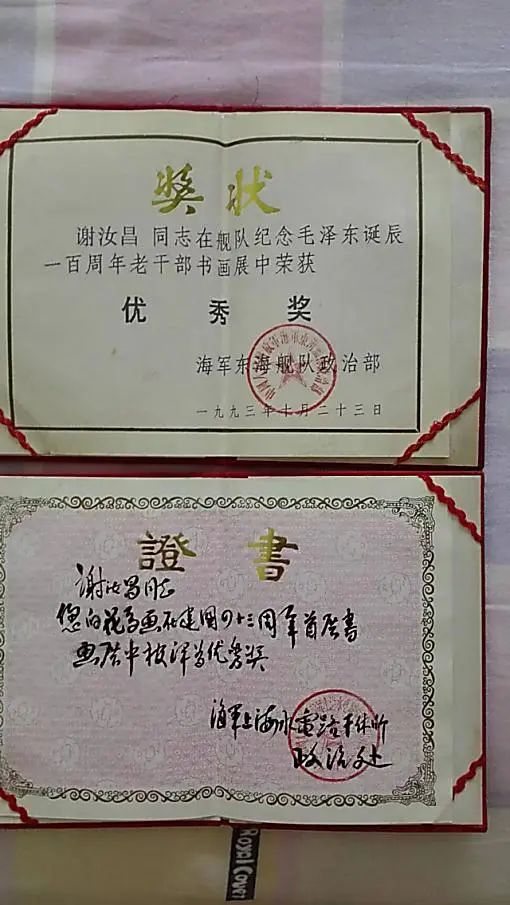 奖状
谢汝昌 同志在舰队纪念毛泽东诞辰
一百周年老干部书画展中荣获
优秀奖
海军东海舰队政治部
一九九三年十月二十三日
證書
谢汝昌同志
您的花鸟画在建国四十三周年首届书
画展中被评为优秀奖
海军上海水电路干休所
政治处
Royal Cover